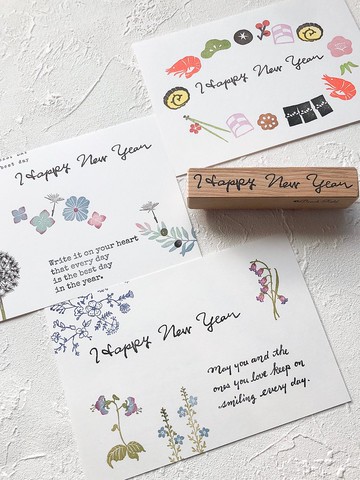 Happy New Year
best day
Happy New Year
Write it on your heart
that every day
is the best day
in the year.
Happy New Year
Happy New Year
May you and the
ones you love keep on
smiling every day.